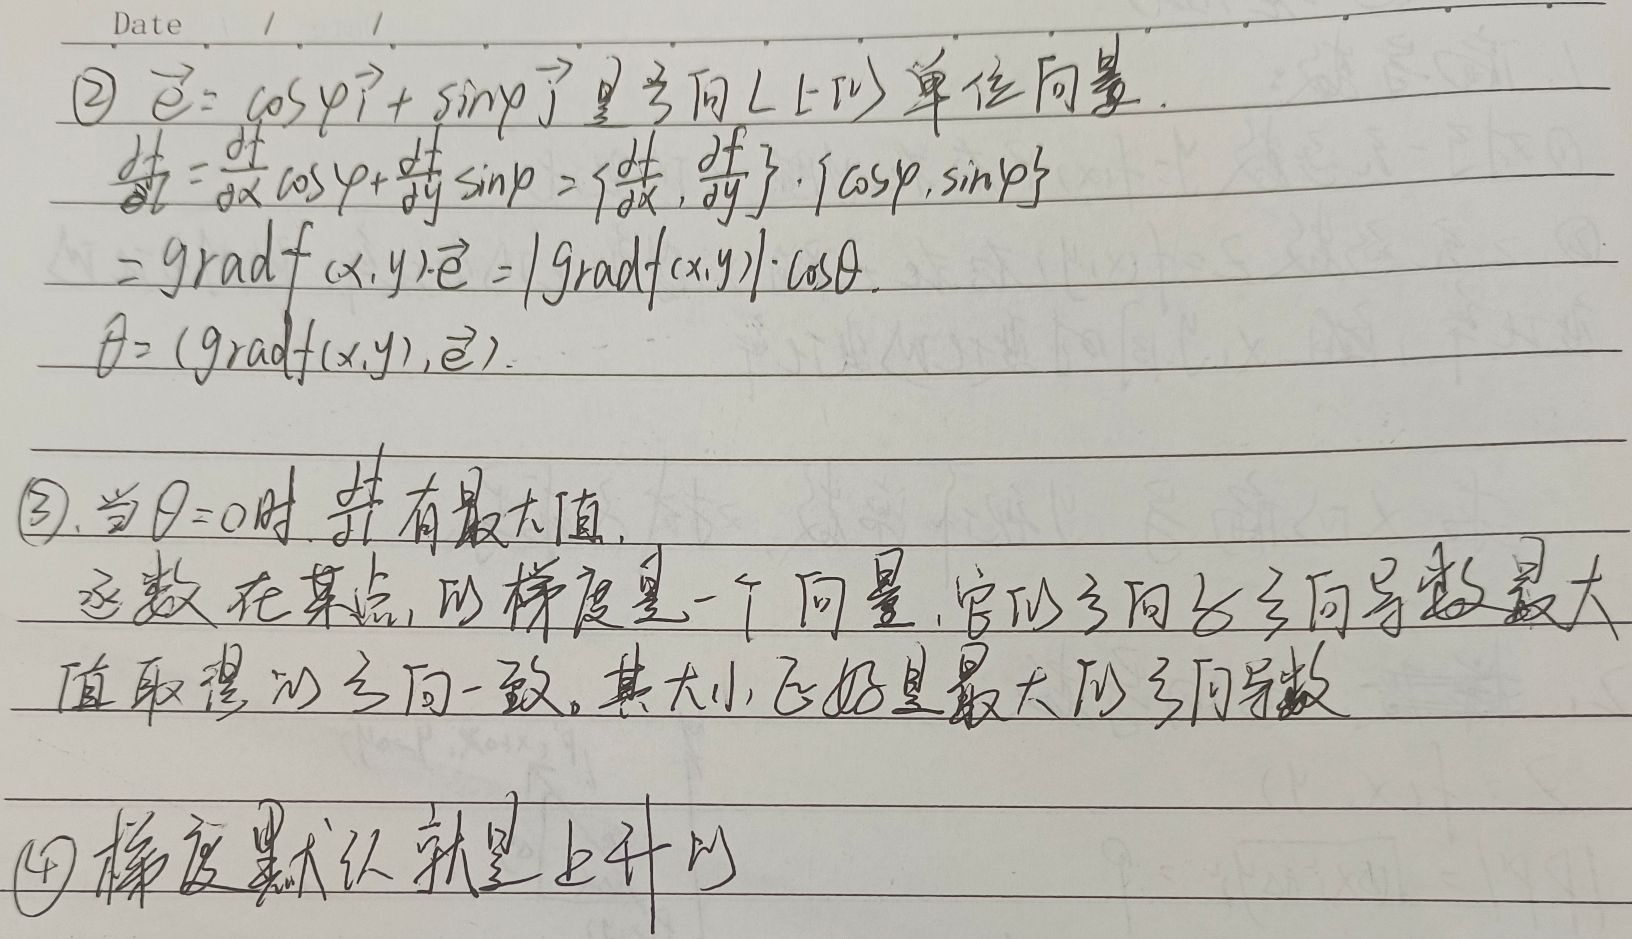 Date / /
② e⃗ = cosφ i⃗ + sinφ j⃗ 是方向L上的单位向量.
∂f/∂l = ∂f/∂x cosφ + ∂f/∂y sinφ = {∂f/∂x, ∂f/∂y}·{cosφ, sinφ}
= gradf(x,y)·e⃗ = |gradf(x,y)|·cosθ.
θ = (gradf(x,y), e⃗).
③. 当θ=0时 ∂f/∂l 有最大值.
函数在某点,的梯度是一个向量,它的方向与方向导数最大
值取得的方向一致。其大小正好是最大的方向导数
④ 梯度默认就是上升的